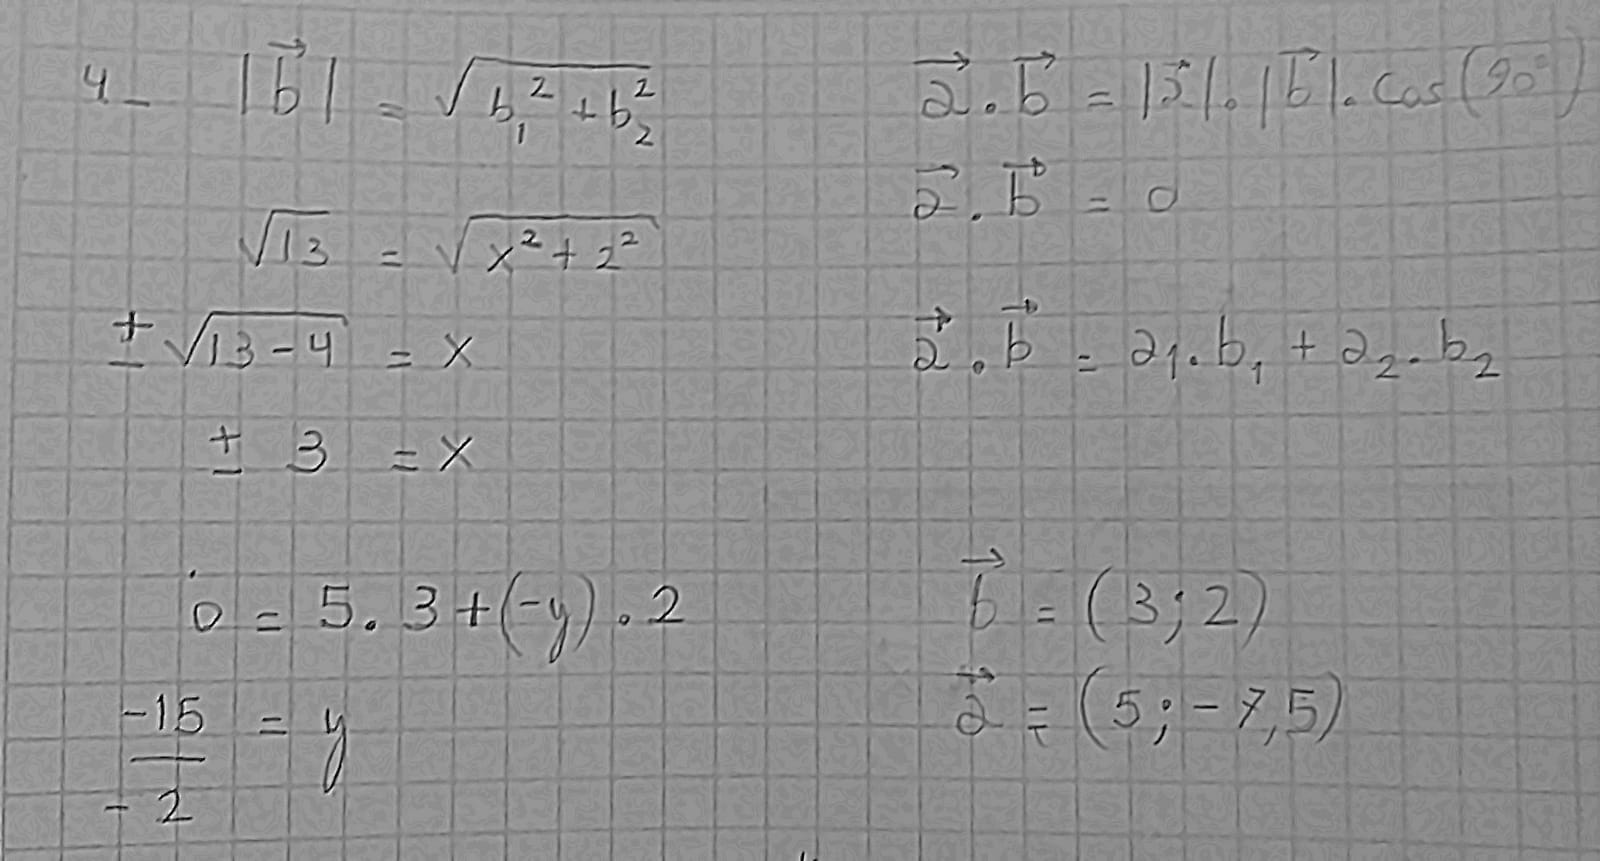 4- |b⃗| = √(b₁² + b₂²)
√13 = √(x² + 2²)
± √(13 - 4) = x
± 3 = x
0 = 5 . 3 + (-y) . 2
-15/-2 = y
a⃗ . b⃗ = |a⃗| . |b⃗| . cos(90°)
a⃗ . b⃗ = 0
a⃗ . b⃗ = a₁ . b₁ + a₂ . b₂
b⃗ = (3; 2)
a⃗ = (5; -7,5)